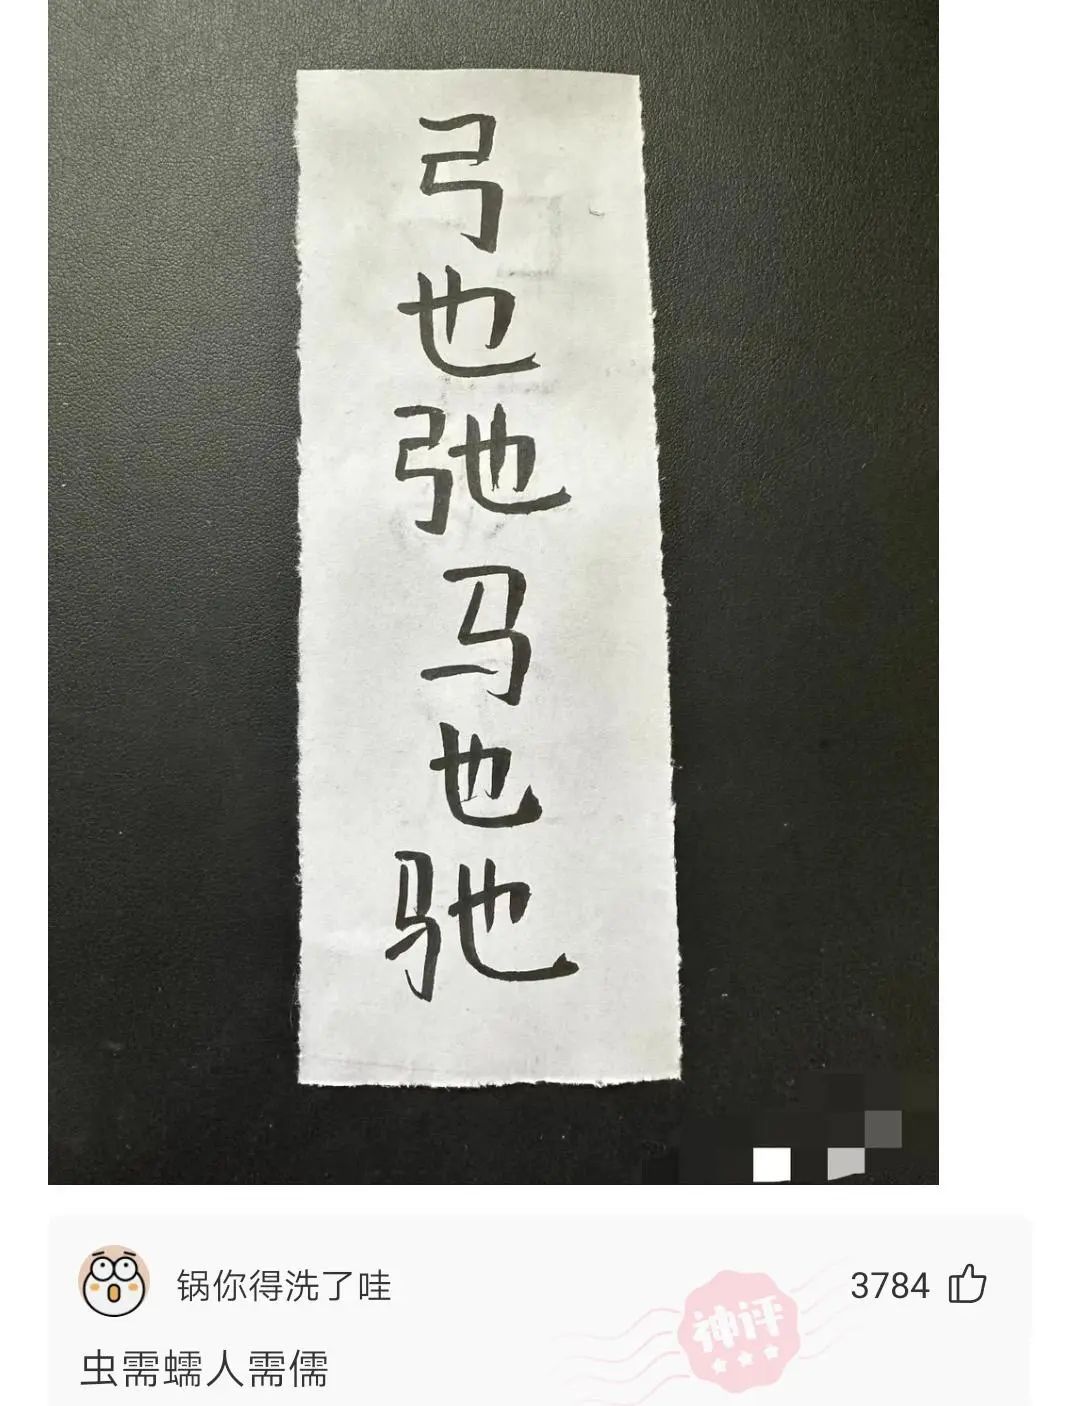 弓也弛马也驰
锅你得洗了哇
3784
神评
虫需蠕人需儒